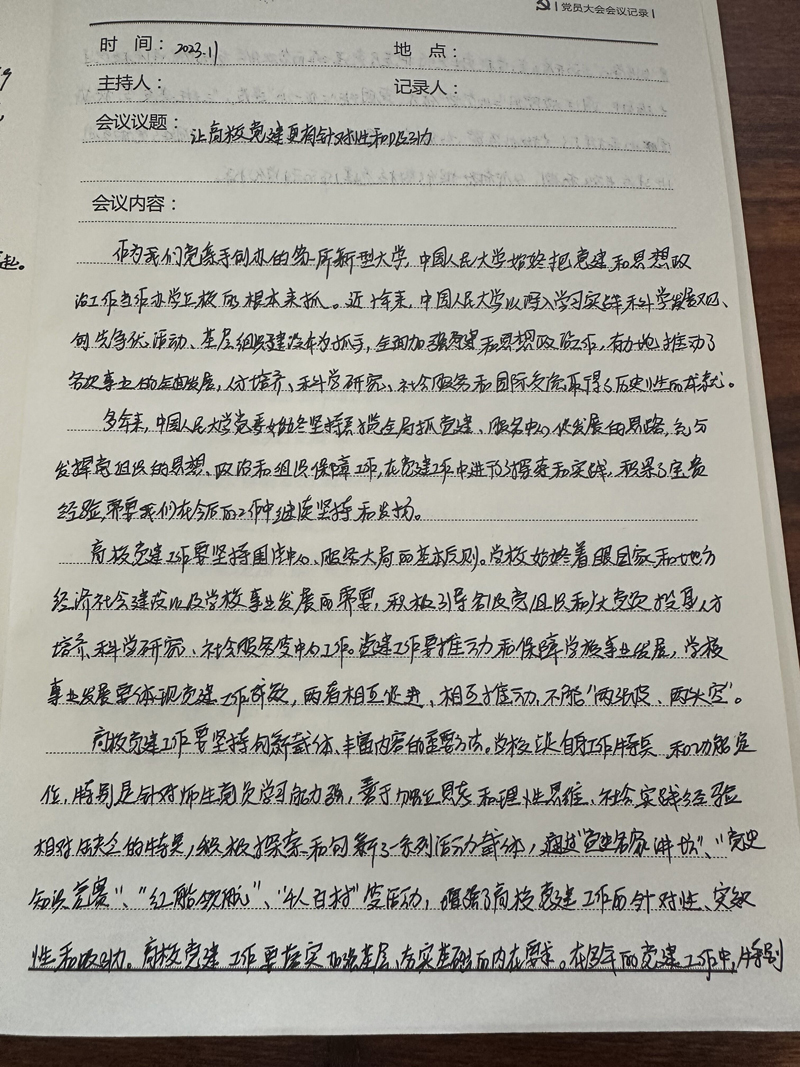 党员大会会议记录
时 间：2023.11 地 点：
主持人： 记录人：
会议议题：让高校党建更有针对性和吸引力
会议内容：
作为我们党亲手创办的第一所新型大学，中国人民大学始终把党建和思想政
治工作当作办学立校的根本来抓。近十年来，中国人民大学以深入学习实践科学发展观、
创先争优活动、基层组织建设年为抓手，全面加强党建和思想政治工作，有力地推动了
各项事业的全面发展，人才培养、科学研究、社会服务和国际交流取得了历史性的成就。
多年来，中国人民大学党委始终坚持总揽全局抓党建、服务中心促发展的思路，充分
发挥党组织的思想、政治和组织保障工作，在党建工作中进行了探索和实践，积累了宝贵
经验，需要我们在今后的工作中继续坚持和发扬。
高校党建工作要坚持围绕中心、服务大局的基本原则。学校始终着眼国家和地方
经济社会建设以及学校事业发展的需要，积极引导各级党组织和广大党员投身人才
培养、科学研究、社会服务等中心工作。党建工作要推动和保障学校事业发展，学校
事业发展要体现党建工作成效，两者相互促进、相互推动，不能“两张皮、两头空”。
高校党建工作要坚持创新载体、丰富内容的重要方法。学校立足自身工作特点和功能定
位，特别是针对师生党员学习能力强，善于独立思考和理性思维、社会实践经验
相对缺乏的特点，积极探索和创新了一系列活动载体，通过“党史名家讲坛”、“党史
知识竞赛”、“红船领航”、“千人百村”等活动，增强了高校党建工作的针对性、实效
性和吸引力。高校党建工作要落实加强基层、夯实基础的内在要求。在多年的党建工作中，特别
起。